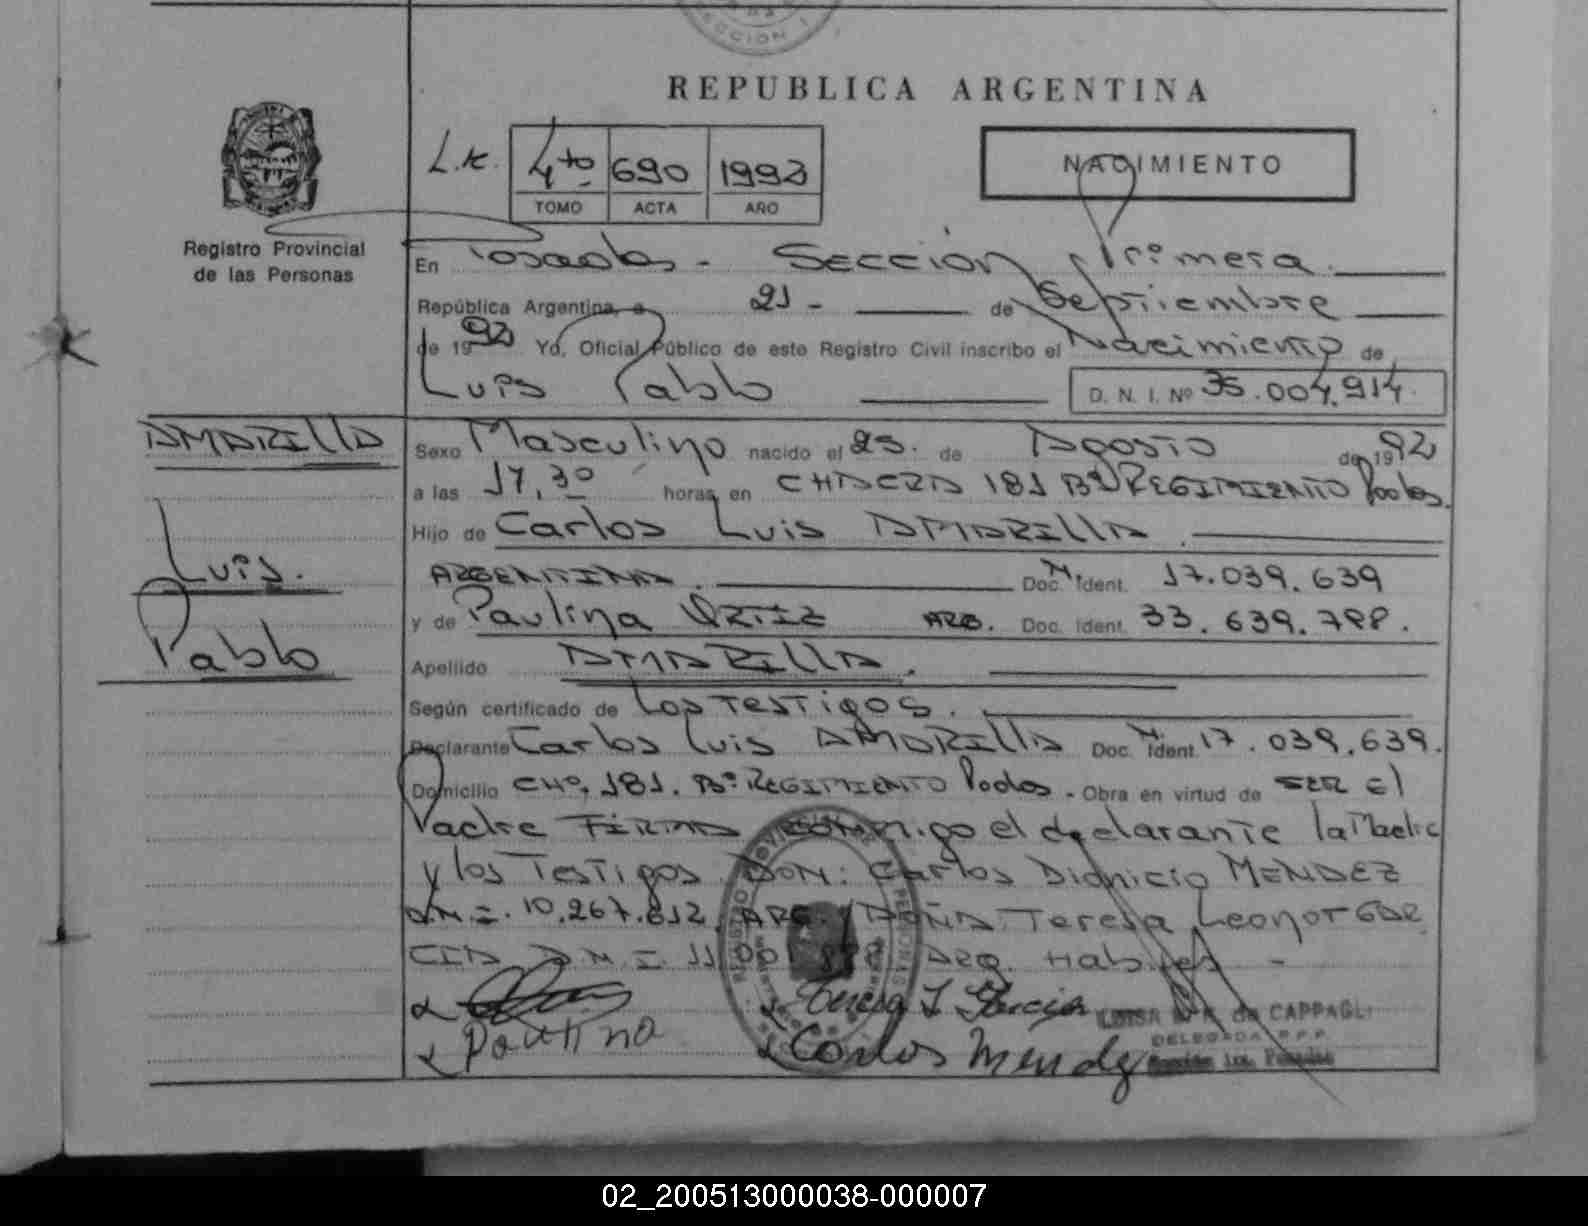 SECCION 1
REPUBLICA ARGENTINA
Registro Provincial
de las Personas
4to 690 1992
TOMO ACTA AÑO
NACIMIENTO
En Posadas - Sección Primera.
República Argentina, a 21 - de Septiembre
de 1992 Yo, Oficial Público de este Registro Civil inscribo el Nacimiento de
Luis Pablo D. N. I. Nº 35.004.914.
AMARILLA
Luis.
Pablo
Sexo Masculino nacido el 25. de Agosto de 1992
a las 17,30 horas en CHACRA 181 Bº REGIMIENTO Posdas.
Hijo de Carlos Luis AMARILLA.
ARGENTINA. Doc. N. Ident. 17.039.639
y de Paulina ORTIZ ARG. Doc. Ident. 33.639.788.
Apellido AMARILLA.
Según certificado de Los Testigos.
Declarante Carlos Luis AMARILLA Doc. N. Ident. 17.039.639.
Domicilio CHº. 181. Bº REGIMIENTO Posdas. Obra en virtud de SER El
Padre FIRMA conmigo el declarante la Madre
y los Testigos DON: Carlos Dionicio MENDEZ
D.N.I. 10.267.612 ARG. / DOÑA: Teresa Leonor GAR
CIA D.N.I. 11 ARG. Habiles -
Teresa L Garcia
Paulina
Carlos Mendez
LUISA de CAPPAGLI
DELEGADA R.P.P.
Sección 1ra. Posadas
02_200513000038-000007